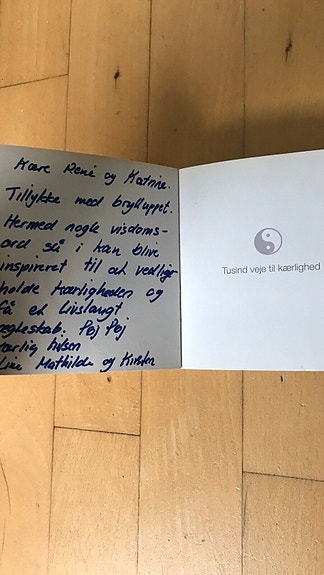 Kære René og Katrine.
Tillykke med brylluppet.
Hermed nogle visdoms-
ord så i kan blive
inspireret til at vedlige-
holde kærligheden og
få et Livslangt
ægteskab. Pøj Pøj
kærlig hilsen
Line Mathilde og Kirsten
Tusind veje til kærlighed